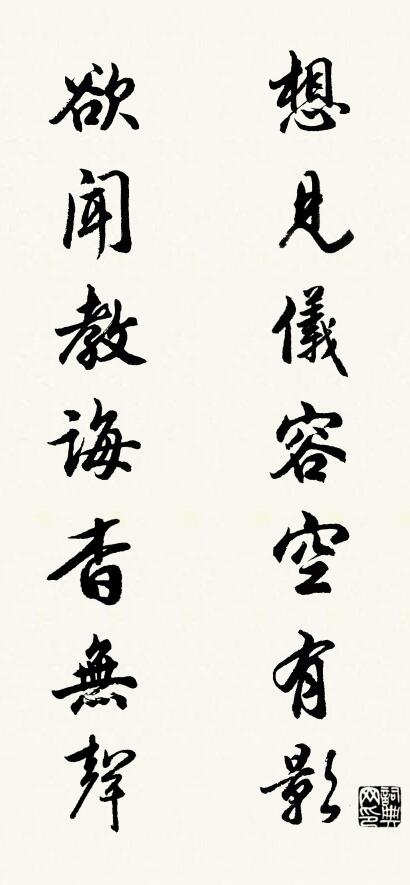 想見儀容空有影
欲聞教誨杳無聲
詞典網